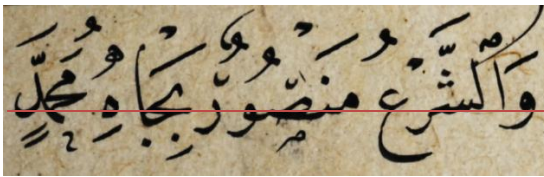 وَالشَّرْعُ مَنْصُورٌ بِجَاهِ مُحَمَّدٍ